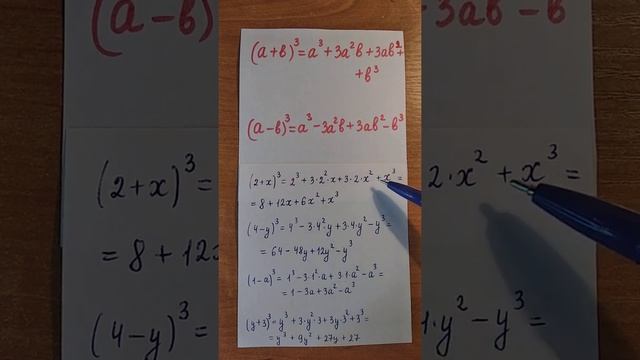 (a+b)³=a³+3a²b+3ab²+
+b³
(a-b)³=a³-3a²b+3ab²-b³
(2+x)³=2³+3·2²·x+3·2·x²+x³=
=8+12x+6x²+x³
(4-y)³=4³-3·4²·y+3·4·y²-y³=
=64-48y+12y²-y³
(1-a)³=1³-3·1²·a+3·1·a²-a³=
=1-3a+3a²-a³
(y+3)³=y³+3·y²·3+3y·3²+3³=
=y³+9y²+27y+27